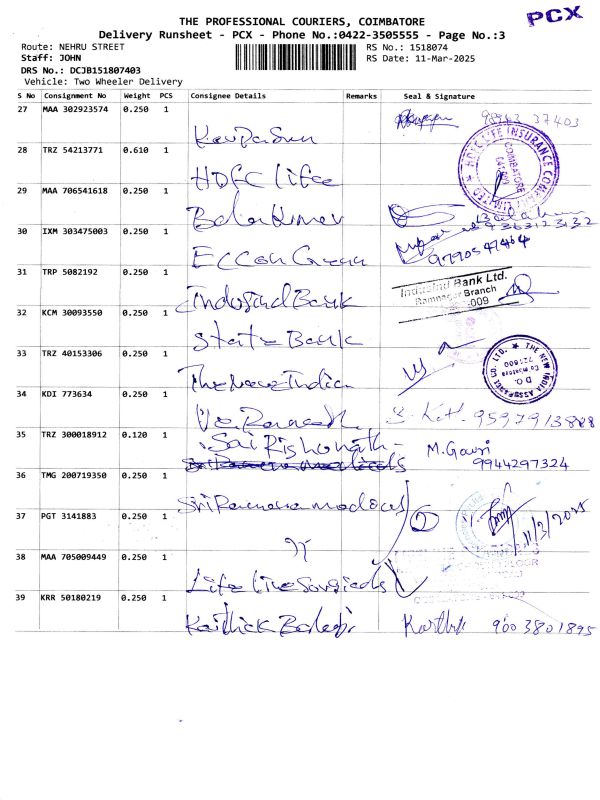 PCX
THE PROFESSIONAL COURIERS, COIMBATORE
Delivery Runsheet - PCX - Phone No.:0422-3505555 - Page No.:3
Route: NEHRU STREET
RS No.: 1518074
Staff: JOHN
RS Date: 11-Mar-2025
DRS No.: DCJB151807403
Vehicle: Two Wheeler Delivery
S No Consignment No Weight PCS Consignee Details Remarks Seal & Signature
27 MAA 302923574 0.250 1
28 TRZ 54213771 0.610 1
HDFC Life
HDFC LIFE INSURANCE COMPANY LIMITED
COIMBATORE
29 MAA 706541618 0.250 1
Balakumar
30 IXM 303475003 0.250 1
9790547464
31 TRP 5082192 0.250 1
IndusInd Bank
IndusInd Bank Ltd.
Ramnagar Branch
32 KCM 30093550 0.250 1
State Bank
33 TRZ 40153306 0.250 1
The New Indian
THE NEW INDIA ASSURANCE CO. LTD.
D.O.
Coimbatore
34 KDI 773634 0.250 1
35 TRZ 300018912 0.120 1
Sai Rishonath
M. Gowri
9944297324
36 TMG 200719350 0.250 1
Sri Ramana medicals
37 PGT 3141883 0.250 1
2
11/3/2025
38 MAA 705009449 0.250 1
Life line Surgicals
39 KRR 50180219 0.250 1
Karthick Balaji
Karthik 9003801895